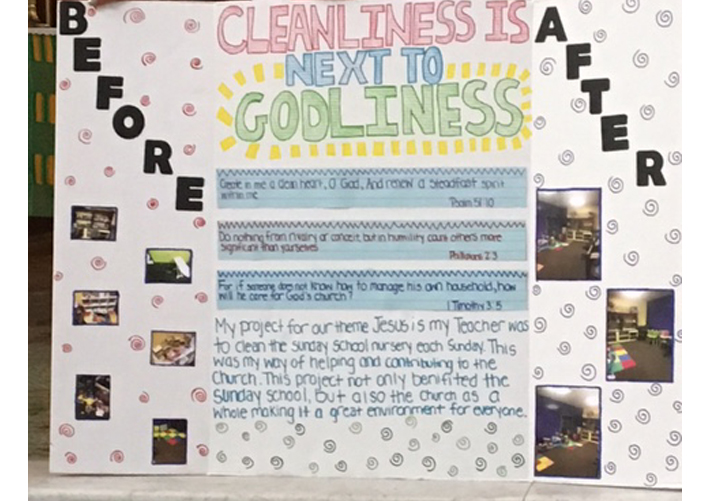 BEFORE
CLEANLINESS IS
NEXT TO
GODLINESS
Create in me a clean heart, O God, And renew a steadfast spirit
within me
Psalm 51:10
Do nothing from rivalry or conceit, but in humility count others more
significant than yourselves
Philippians 2:3
For if someone does not know how to manage his own household, how
will he care for God's church?
1 Timothy 3:5
My project for our theme Jesus is my Teacher was
to clean the sunday school nursery each Sunday. This
was my way of helping and contributing to the
Church. This project not only benifited the
Sunday school, but also the church as a
whole making it a great environment for everyone.
AFTER